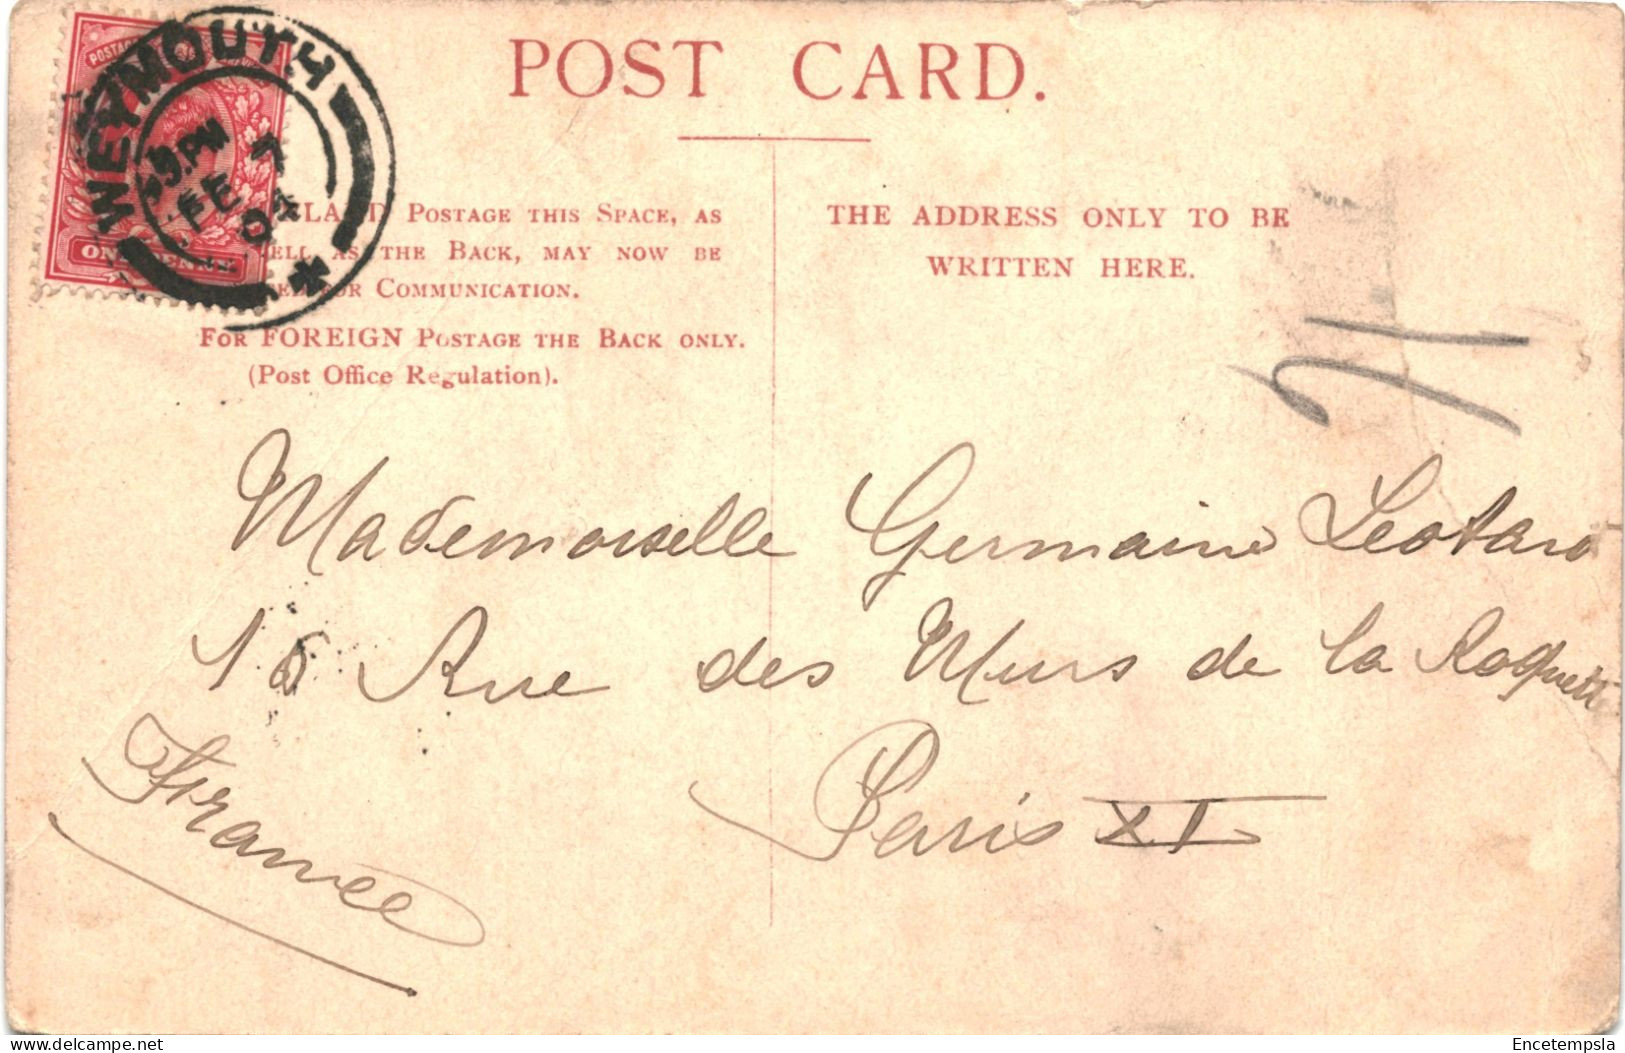 POST CARD.
WEYMOUTH
9.PM
FE 7
04
POSTAGE
ONE PENNY
POSTAGE THIS SPACE, AS
AS THE BACK, MAY NOW BE
FOR COMMUNICATION.
FOR FOREIGN POSTAGE THE BACK ONLY.
(Post Office Regulation).
THE ADDRESS ONLY TO BE
WRITTEN HERE.
Mademoiselle Germaine Leotard
16 Rue des Murs de la Roquette
Paris XI
France
Encetempsla